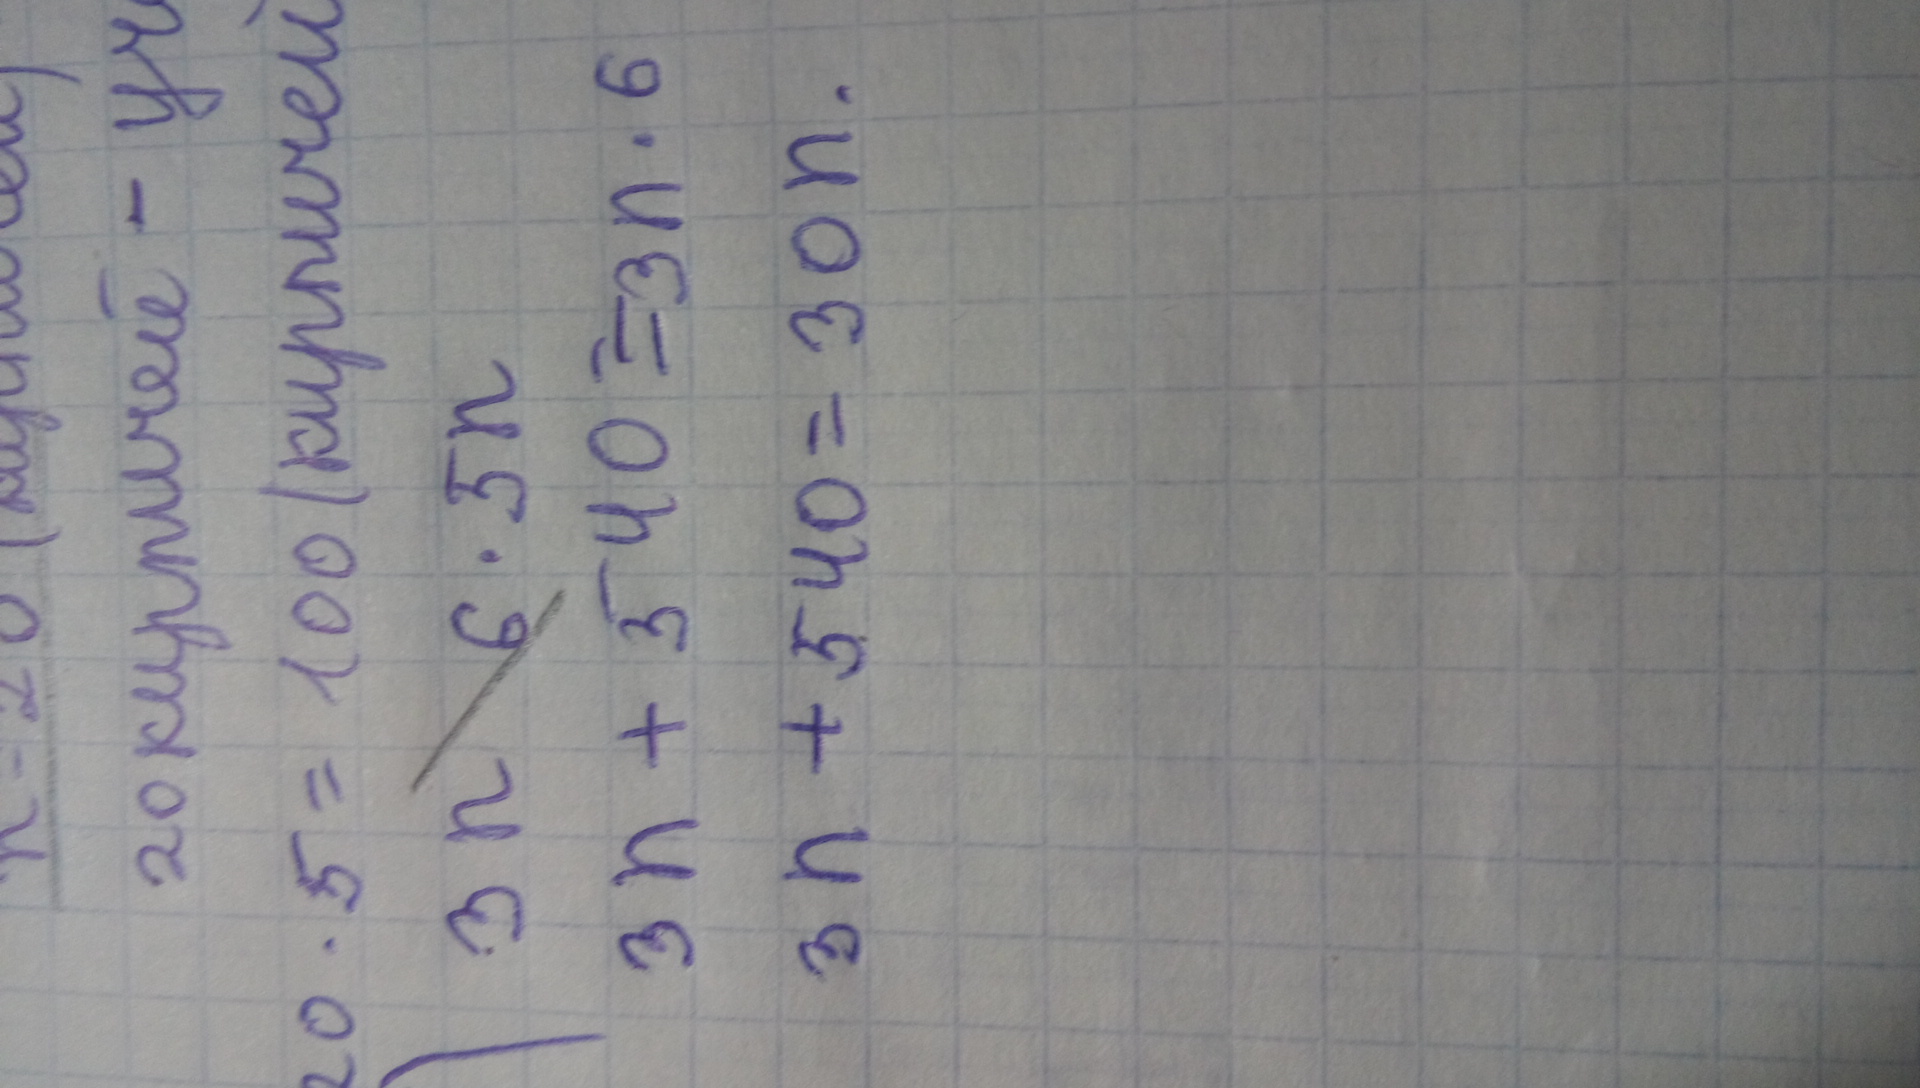 n = 20 (кирпичей)
20 кирпичей - уч
20 . 5 = 100 (кирпичей
3 n 6 . 5 n
3 n + 540 = 3 n . 6
3 n + 540 = 30 n .